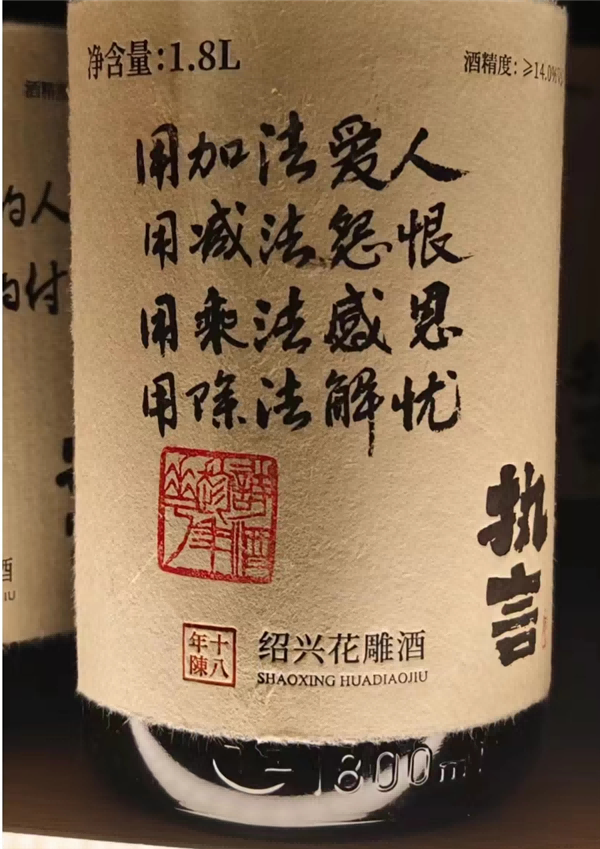 净含量:1.8L
酒精度:≥14.0%
用加法爱人
用减法怨恨
用乘法感恩
用除法解忧
诗酒趁年华
执言
十八年陳
绍兴花雕酒
SHAOXING HUADIAOJIU
1800ml
的人
的付
酒